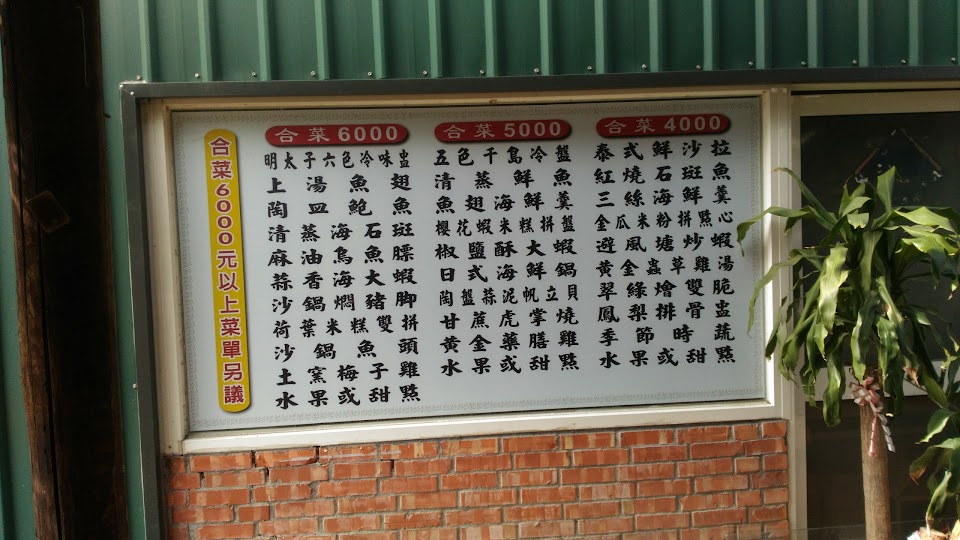 合菜6000元以上菜單另議
合菜6000
明太子六色冷味盅
上湯魚翅
陶皿鮑魚
清蒸海石斑
麻油烏魚膘
蒜香海大蝦
沙鍋燜豬腳
荷葉米糕雙拼
沙鍋魚頭
土窯梅子雞
水果或甜點
合菜5000
五色千島冷盤
清蒸鮮魚
魚翅海鮮羹
櫻花蝦米糕拼盤
椒鹽酥大蝦
日式海鮮鍋
陶盤蒜泥帆立貝
甘蔗虎掌燒
黃金藥膳雞
水果或甜點
合菜4000
泰式鮮沙拉
紅燒石斑魚
三絲海鮮羹
金瓜米粉拼點心
避風塘炒蝦
黃金蟲草雞湯
翠綠燴雙脆
鳳梨排骨盅
季節時蔬
水果或甜點